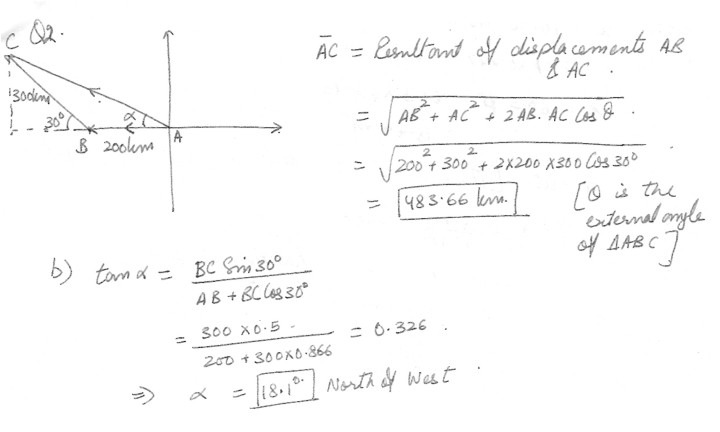 Q2.
C
300km
30°
B
200km
α
A
A̅C̅ = Resultant of displacements AB
& AC .
= √(AB² + AC² + 2 AB. AC Cos θ .
= √(200² + 300² + 2×200 ×300 Cos 30°
= 483.66 km.
[θ is the
external angle
of ΔABC]
b) tan α = BC Sin 30°
AB + BC Cos 30°
= 300 × 0.5 = 0.326 .
200 + 300×0.866
⇒ α = 18.1°. North of West .